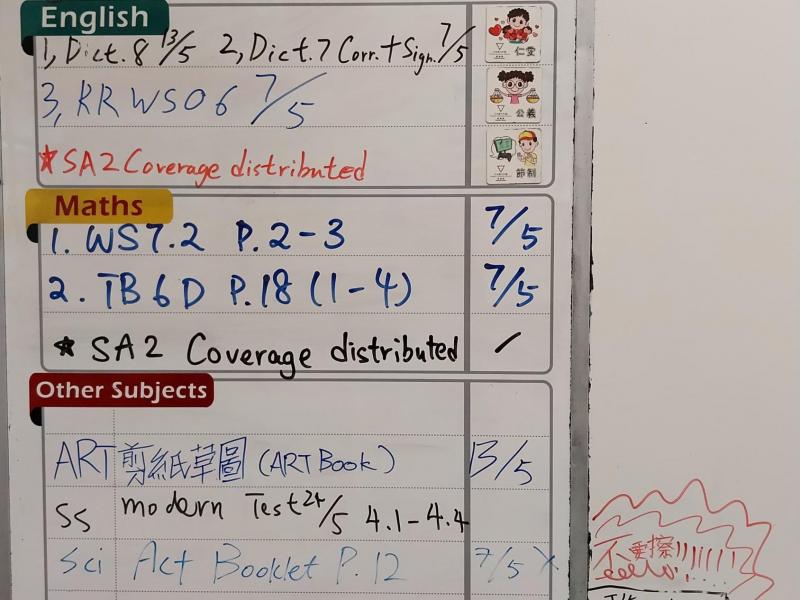 English
1, Dict. 8 13/5 2, Dict. 7 Corr. + Sign. 7/5
仁愛
3, RR WS06 7/5
公義
★ SA2 Coverage distributed
節制
Maths
1. WS7.2 P.2-3 7/5
2. TB6D P.18 (1-4) 7/5
★ SA2 Coverage distributed /
Other Subjects
ART 剪紙草圖 (ART Book) 13/5
SS modern Test 24/5 4.1-4.4
Sci Act Booklet P.12 7/5 X
不要擦!!!!!!!